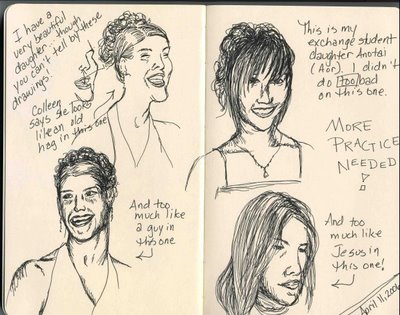 I have a
very beautiful
daughter, though
you can't tell by these
drawings.
Colleen
says she looks
like an old
hag in this one
And too
much like
a guy in
this one
This is my
exchange student
daughter Anotai
(Aor). I didn't
do too bad
on this one.
MORE
PRACTICE
NEEDED
!
And too
much like
Jesus in
this one!
April 11, 2006